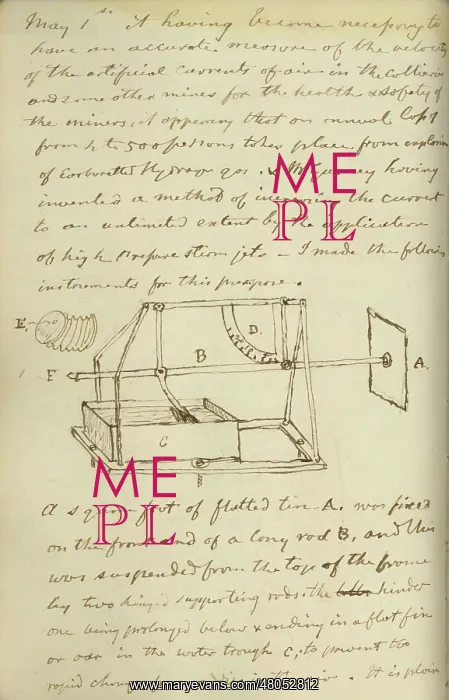 May 1st it having become necessary to
have an accurate measure of the velocity
of the artificial currents of air in the Collieries
and some other mines for the health & safety of
the miners, it appearing that an annual Loss
from 4 to 500 persons takes place from explosion
of Carburetted Hydrogen gas. & Mr Gurney having
invented a method of increasing the current
to an unlimited extent by the application
of high Pressure steam jets – I made the following
instruments for this purpose.
E.
D.
B
F
A.
C
A square foot of flatted tin A. was fixed
on the front end of a long rod B, and this
was suspended from the top of the frame
by two hinged supporting rods: the hinder
one being prolonged below & ending in a flat fin
or oar in the water trough C, to prevent too
rapid It is plain
ME
PL
ME
PL
www.maryevans.com/48052812